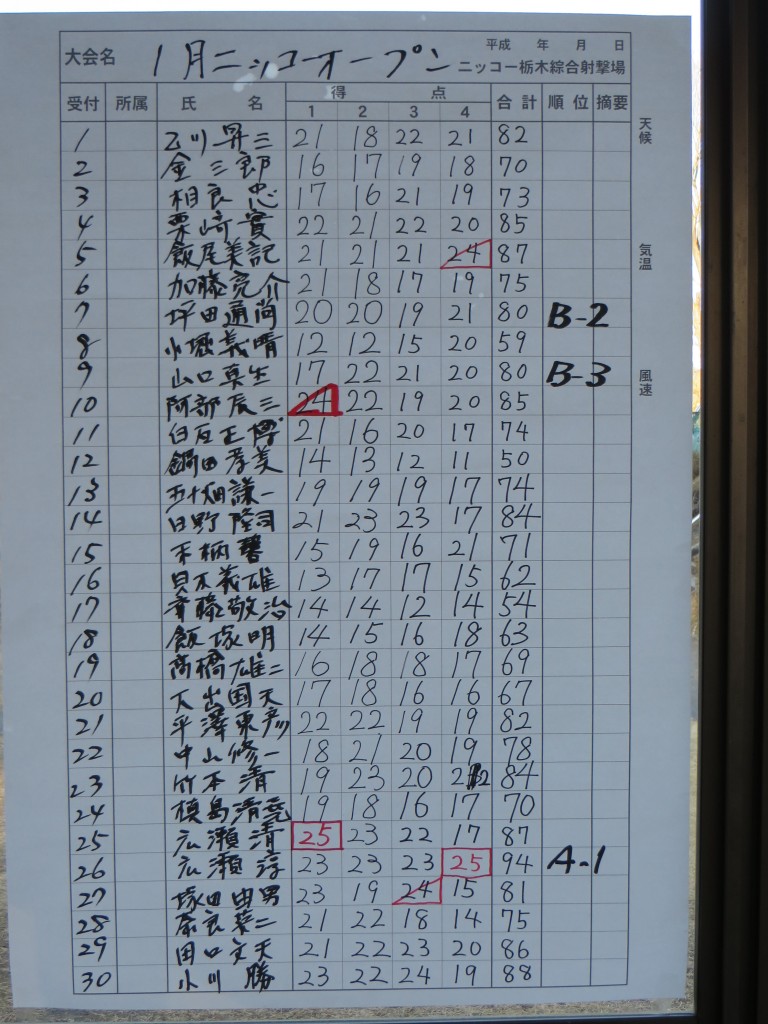 大会名 1月ニッコーオープン 平成 年 月 日
ニッコー栃木綜合射撃場
受付 所属 氏 名 得 点 合計 順位 摘要
1 2 3 4
天候
気温
風速
1 乙川昇三 21 18 22 21 82
2 金三郎 16 17 19 18 70
3 相良忠 17 16 21 19 73
4 栗崎實 22 21 22 20 85
5 飯尾美記 21 21 21 24 87
6 加藤亮介 21 18 17 19 75
7 坪田通尚 20 20 19 21 80 B-2
8 小堀義晴 12 12 15 20 59
9 山口真生 17 22 21 20 80 B-3
10 阿部辰三 24 22 19 20 85
11 白石正博 21 16 20 17 74
12 鍋田孝美 14 13 12 11 50
13 五十畑謙一 19 19 19 17 74
14 日野隆司 21 23 23 17 84
15 15 19 16 21 71
16 義雄 13 17 17 15 62
17 齊藤敬治 14 14 12 14 54
18 飯塚明 14 15 16 18 63
19 高橋雄二 16 18 18 17 69
20 大出国夫 17 18 16 16 67
21 平澤東彦 22 22 19 19 82
22 中山修一 18 21 20 19 78
23 竹本清 19 23 20 22 84
24 槙島清 19 18 16 17 70
25 広瀬清 25 23 22 17 87
26 広瀬淳 23 23 23 25 94 A-1
27 塚田由男 23 19 24 15 81
28 奈良栄二 21 22 18 14 75
29 田口文夫 21 22 23 20 86
30 小川勝 23 22 24 19 88